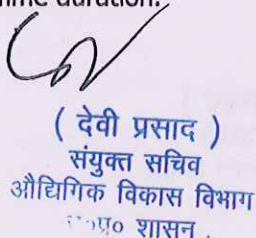 duration.
( देवी प्रसाद )
संयुक्त सचिव
औद्यिगिक विकास विभाग
शासन .